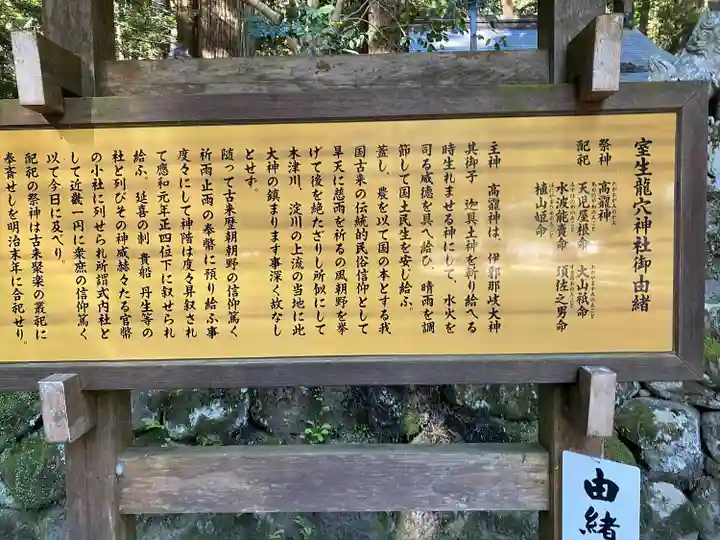 室生龍穴神社御由緒
祭神 高龗神
配祀 天児屋根命 大山祇命
水波能賣命 須佐之男命
植山姫命
主神 高龗神は、伊邪那岐大神
其御子 迦具土神を斬り給へる
時生れませる神にして、水火を
司る威徳を具へ給ひ、晴雨を調
節して国土民生を安じ給ふ。
蓋し、農を以て国の本とする我
国古来の伝統的民俗信仰として
旱天に慈雨を祈るの風朝野を挙
げて後を絶たざりし所似にして
木津川、淀川の上流の当地に此
大神の鎮まります事深く故なし
とせず。
随って古来歴朝朝野の信仰篤く
祈雨止雨の奉幣に預り給ふ事
度々にして神階は度々昇叙され
て應和元年正四位下に叙せられ
給ふ、延喜の制 貴船 丹生等の
社と列びその神威赫々たる官幣
の小社に列せられ所謂式内社と
して近畿一円に衆庶の信仰篤く
以て今日に及べり。
配祀の祭神は古来聚楽の叢祀に
奉斎せしを明治末年に合祀せり。
由緒